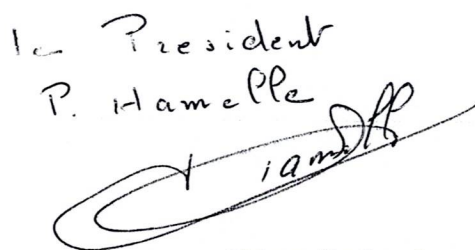 Le President
P. Hamelle